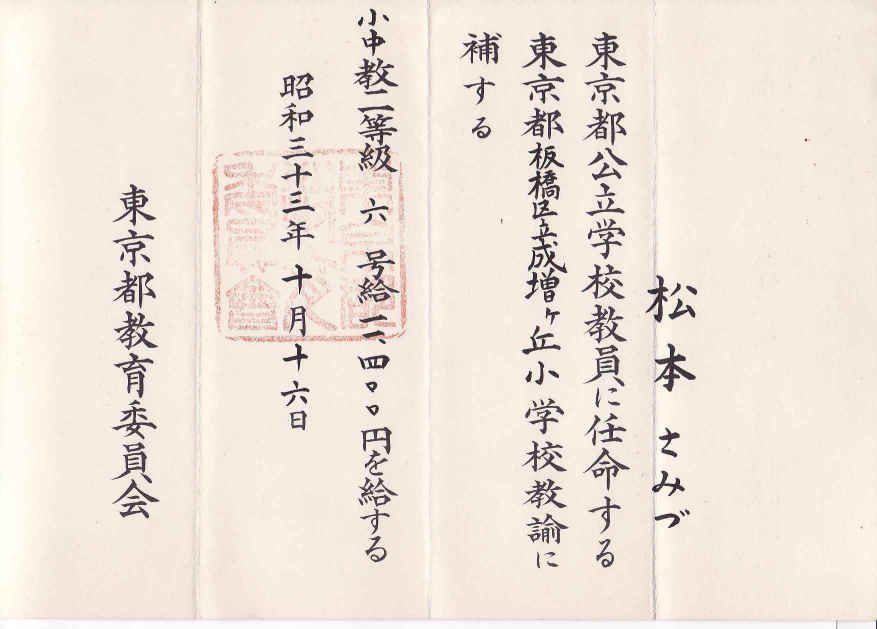 松本さみづ
東京都公立学校教員に任命する
東京都板橋区立成増ヶ丘小学校教諭に
補する
小中教二等級 六 号給一二、四〇〇円を給する
昭和三十三年 十月十六日
東京都教育委員会